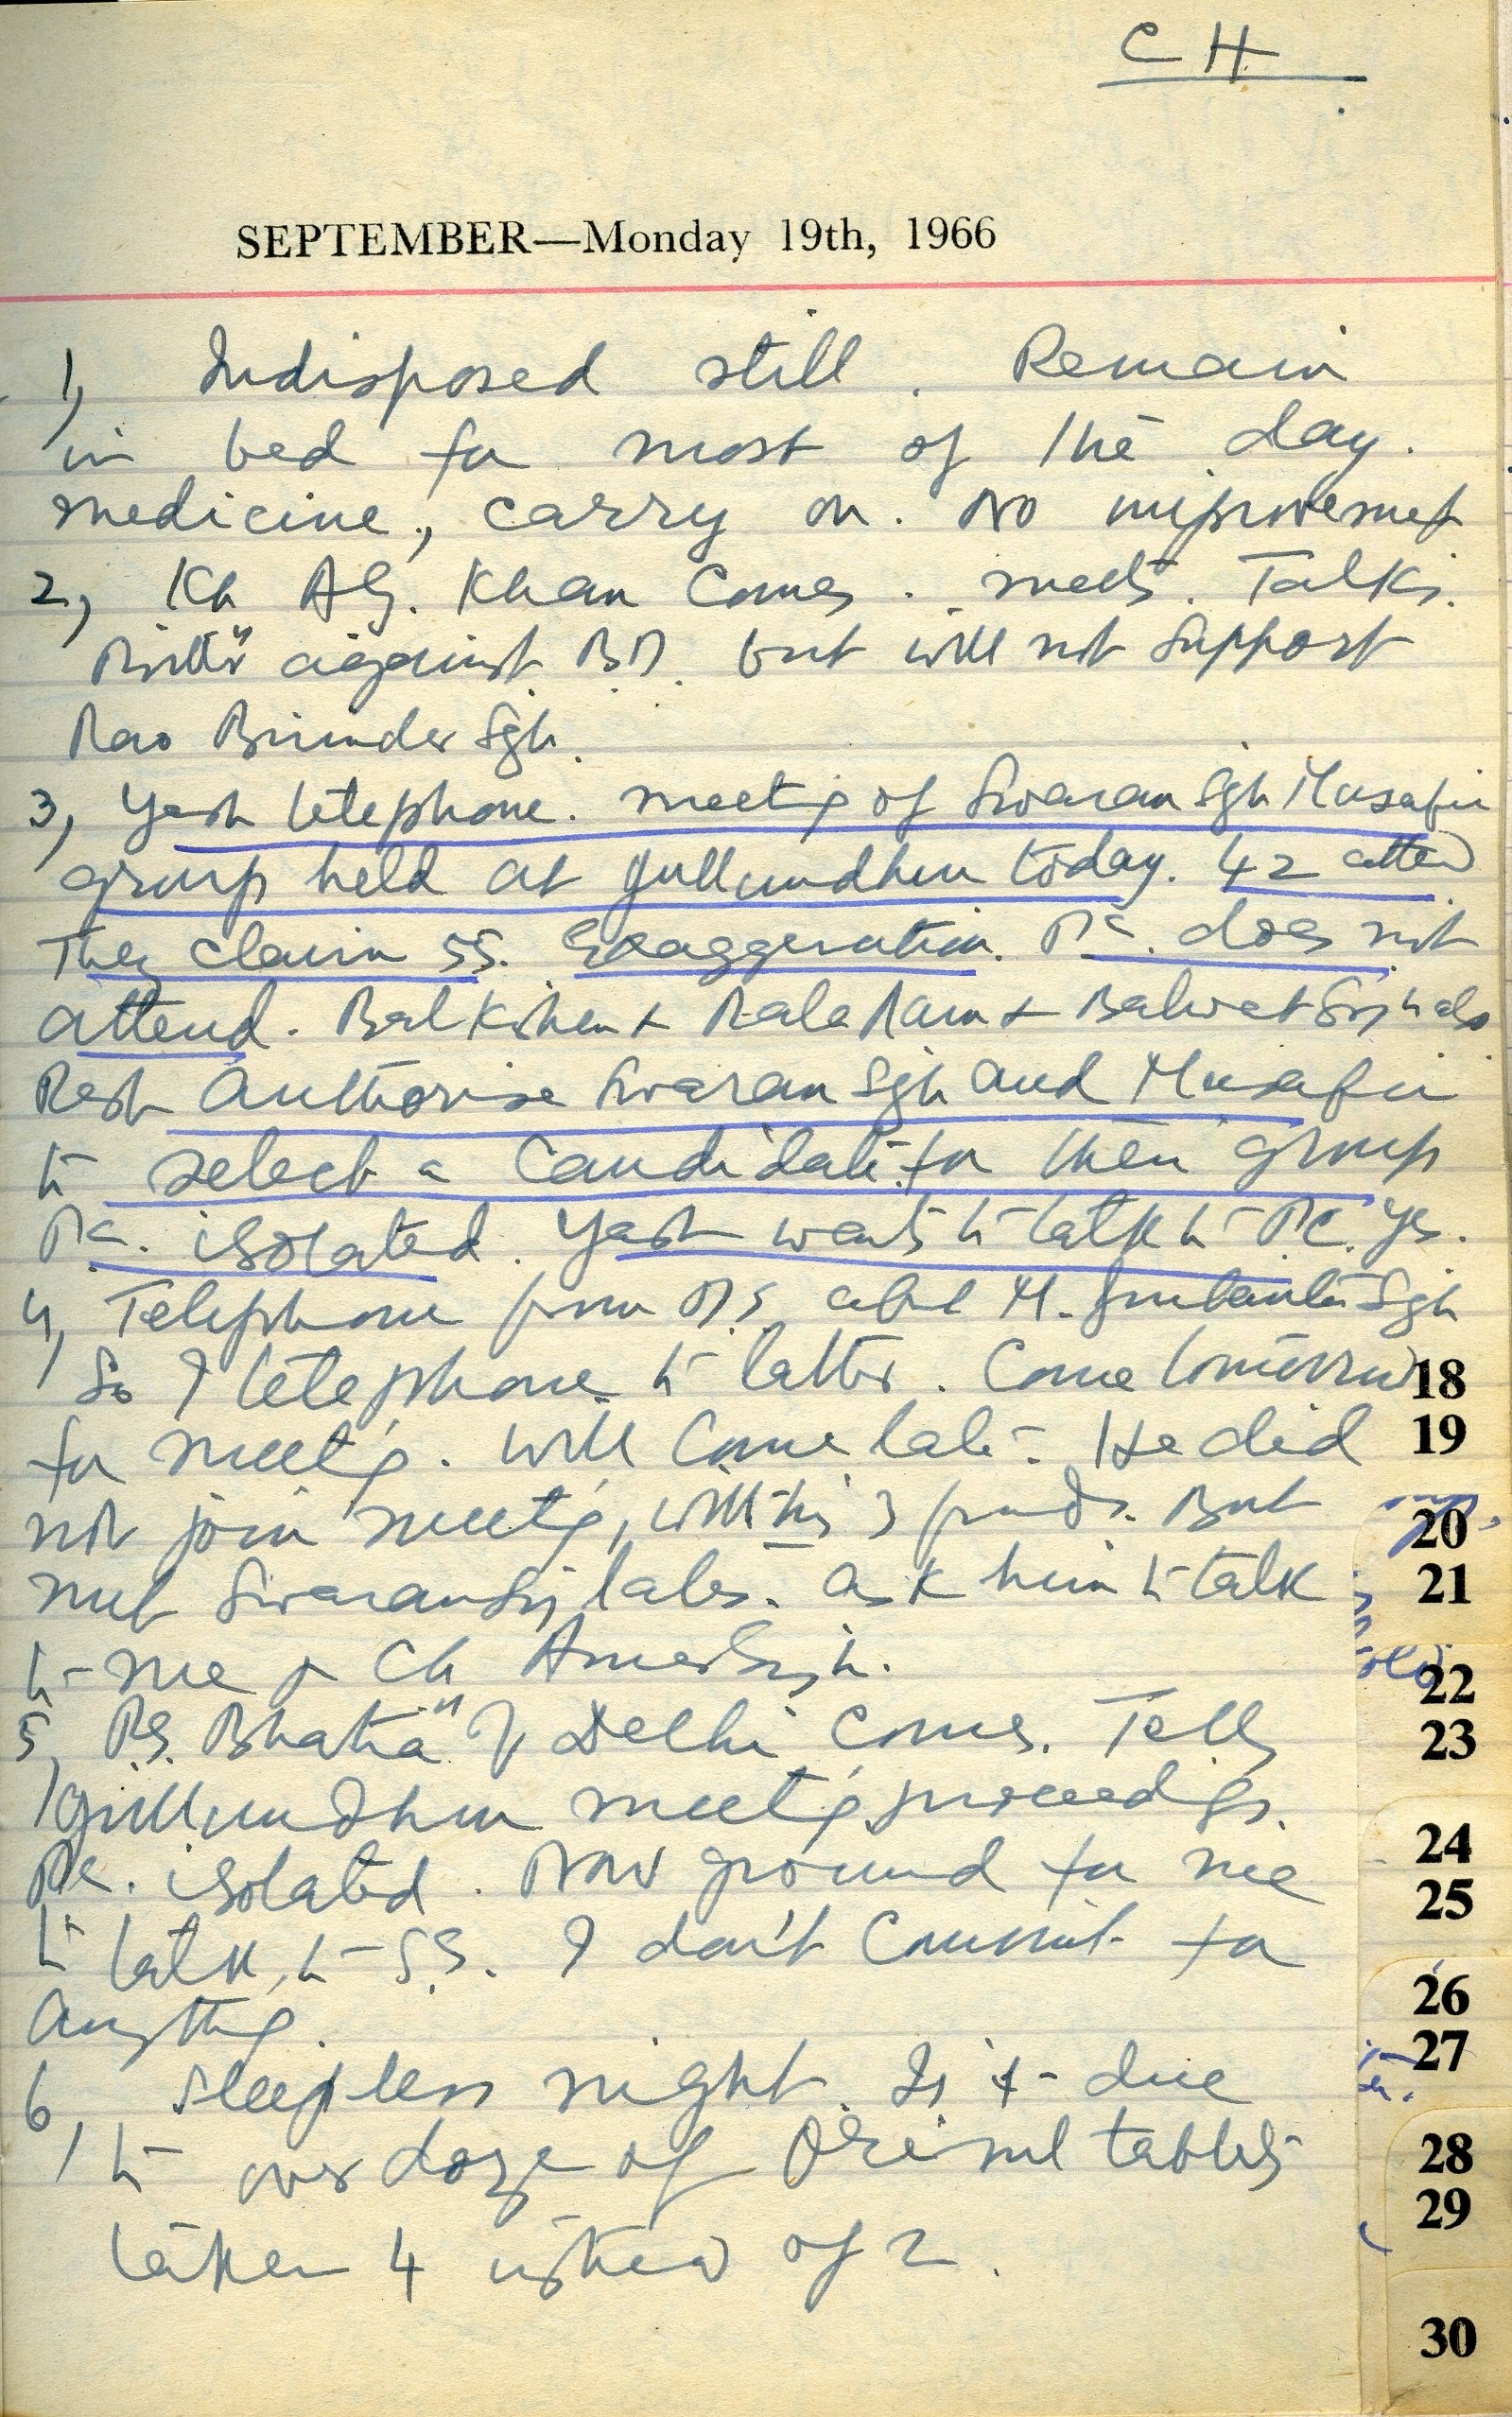 C H
SEPTEMBER—Monday 19th, 1966
1, Indisposed still. Remain
in bed for most of the day.
medicine, carry on. No improvement
2, Kh A.G. Khan comes. meets. Talks.
Bitter against B.D. but will not support
Rao Birinder Sgh.
3, Yash telephone. meeting of Swaran Sgh Musafir
group held at Jullundhur today. 42 attend
They claim 55. Exaggeration. P.C. does not
attend. Bal Kishen + Rala Ram + Balwat Singh also
Rest authorise Swaran Sgh and Musafir
to select a candidate for their group
P.C. isolated. Yash wants to talk to P.C. Yes.
4, Telephone from about M. Gurbanta Sgh
So I telephone to latter. Come tomorrow
for meetig. Will come late. He did
not join meetig, with his 3 friends. But
met Swaran Sgh later. ask him to talk
to me + Ch Amar Singh.
5, P.S. Bhatia of Delhi comes. Tells
Jullundhur meetig proceedigs.
P.C. isolated. Now ground for me
to talk to S.S. I don't commit for
anythig.
6, Sleepless night. Is it due
to over doze of tablets
taken 4 instead of 2.
18
19
20
21
22
23
24
25
26
27
28
29
30